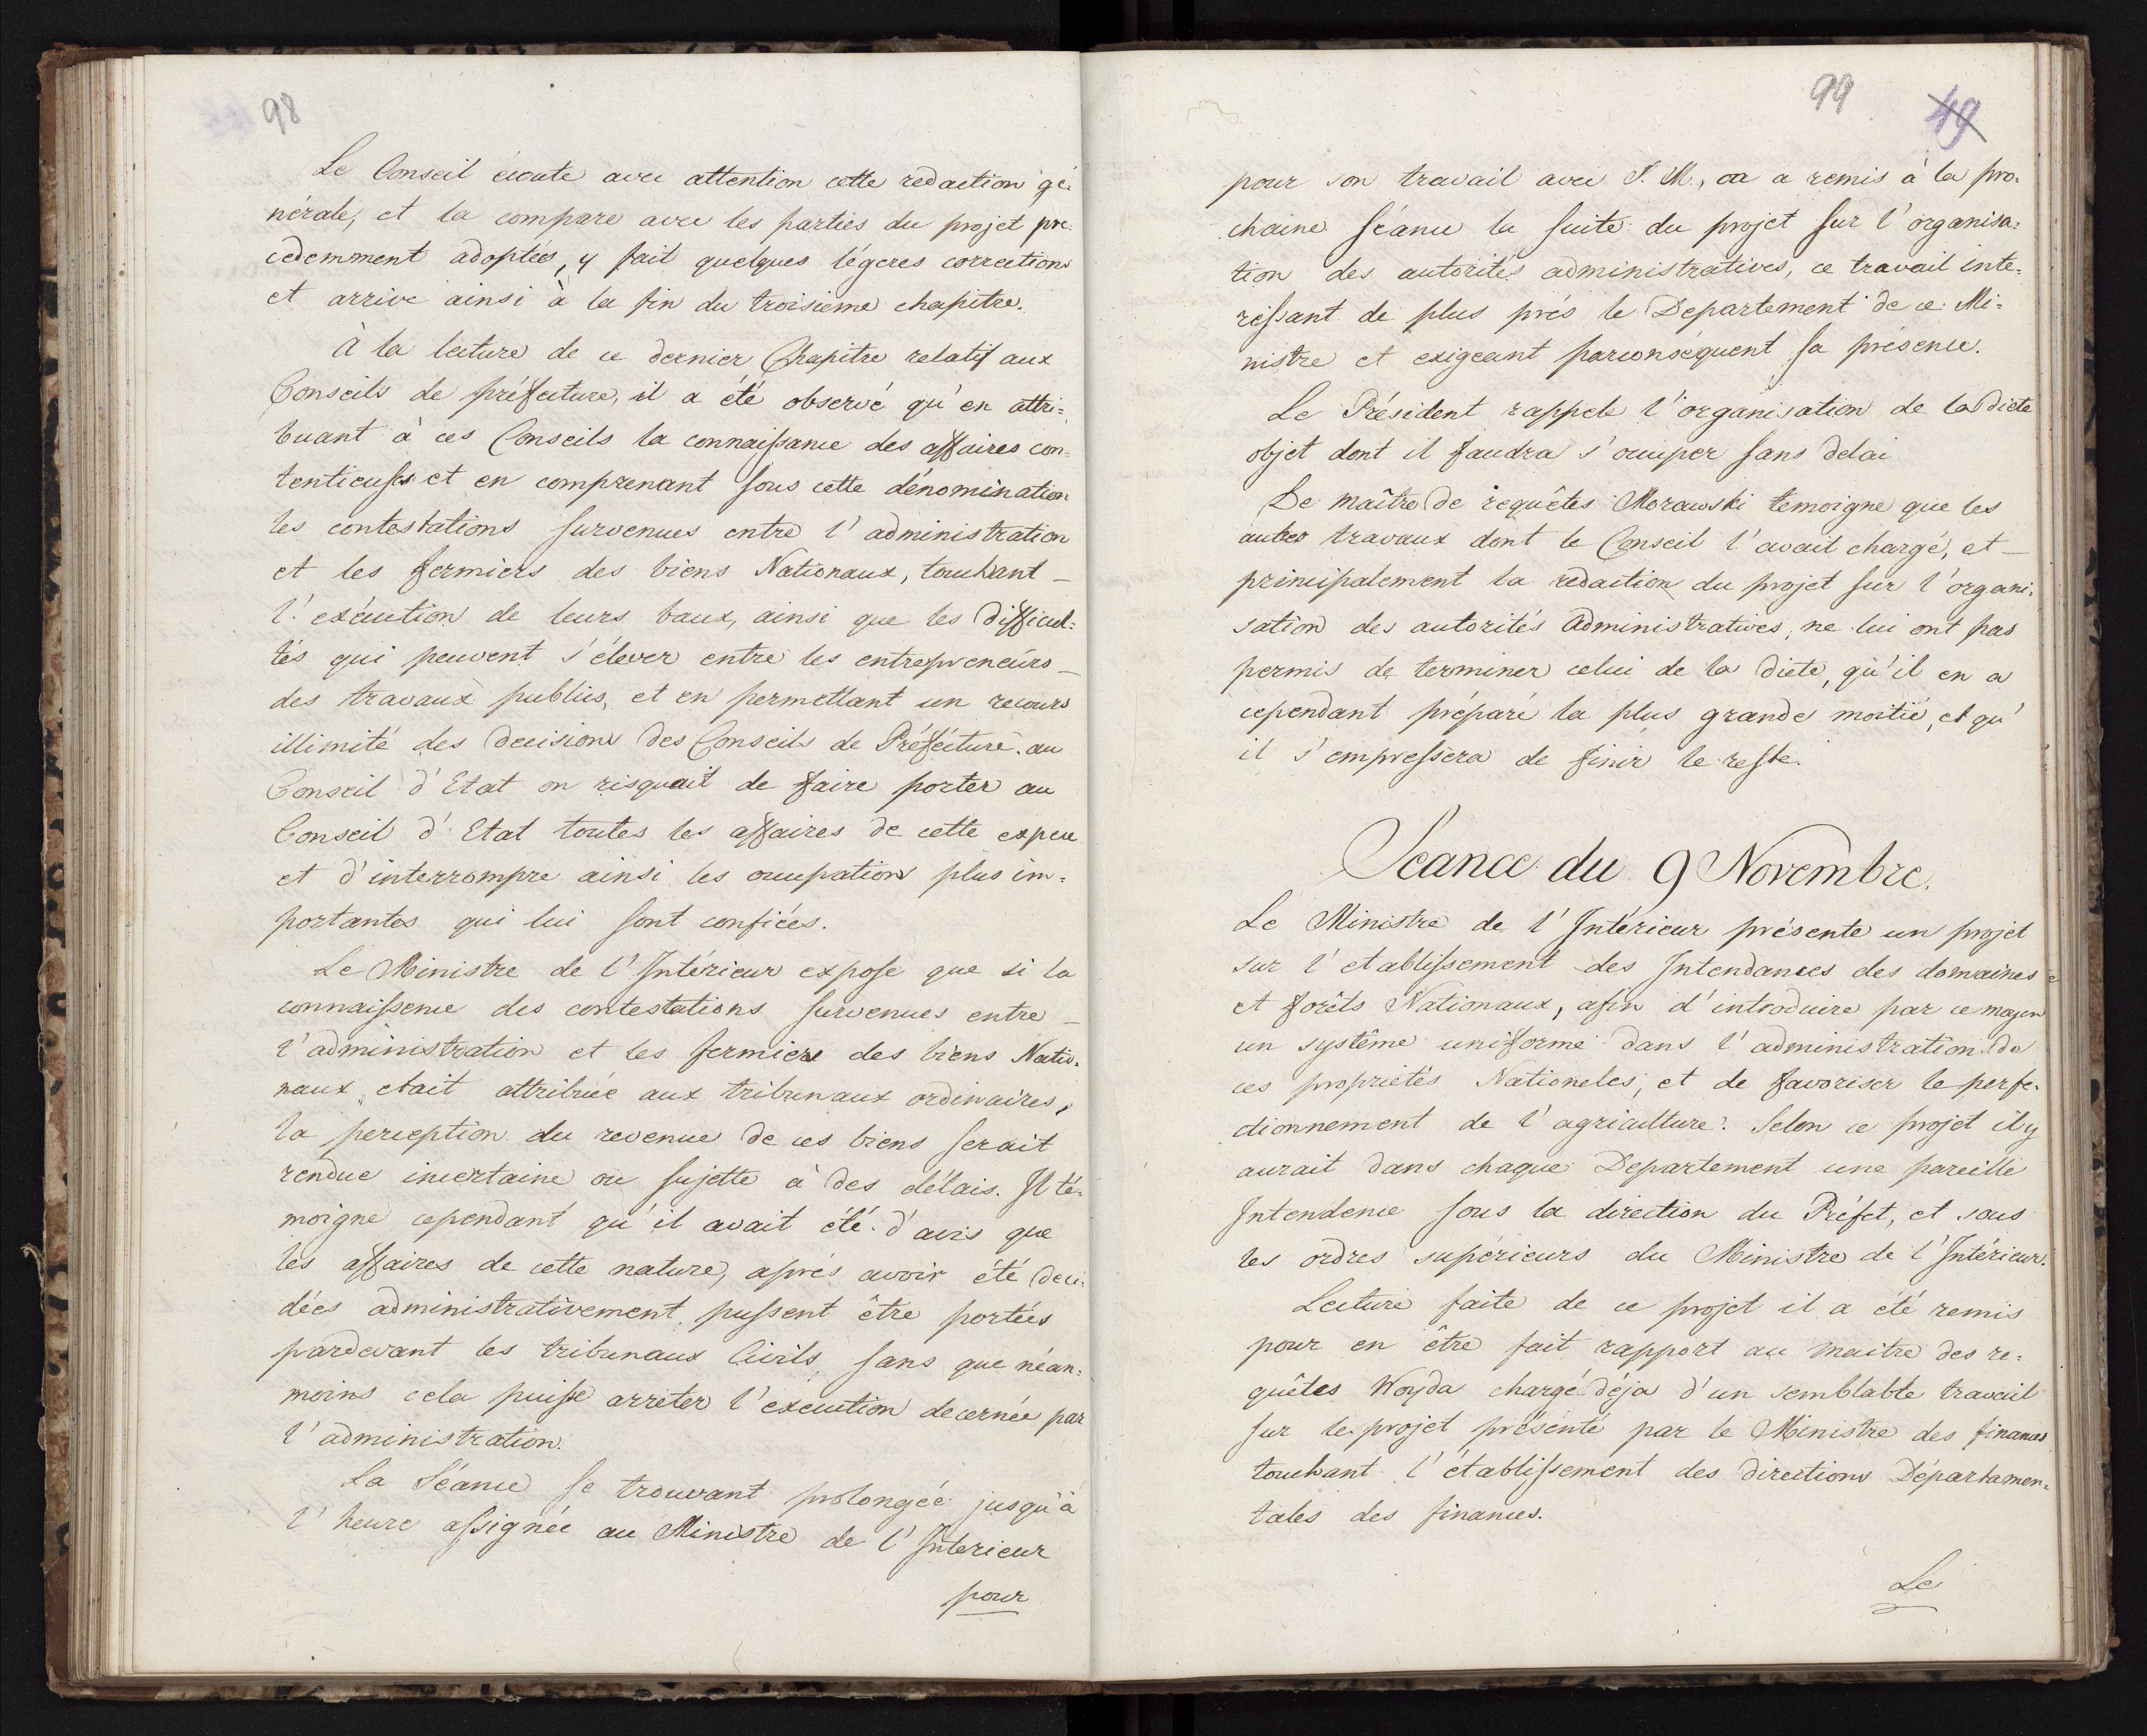 98
Le Conseil écoute avec attention cette redaction gé-
nérale, et la compare avec les parties du projet pre-
cedemment adoptées, y fait quelques légeres corrections
et arrive ainsi à la fin du troisieme chapitre.
À la lecture de ce dernier Chapitre relatif aux
Conseils de préfecture, il a été observé qu'en attri=
buant à ces Conseils la connaissance des affaires con=
tentieuses et en comprenant sous cette dénomination
les contestations survenues entre l'administration
et les fermiers des biens Nationaux, touchant _
l'exécution de leurs baux, ainsi que les difficul=
tés qui peuvent s'élever entre les entrepreneurs _
des travaux publics, et en permettant un recours
illimité des decisions des Conseils de Préfecture au
Conseil d'Etat on risquait de faire porter au
Conseil d'Etat toutes les affaires de cette espece
et d'interrompre ainsi les occupations plus im=
portantes qui lui sont confiées.
Le Ministre de l'Intérieur expose que si la
connaissence des contestations survenues entre _
l'administration et les fermiers des biens Natio-
naux etait attribuée aux tribunaux ordinaires,
la perception du revenue de ces biens serait
rendue incertaine ou sujette à des délais. Il té=
moigne cependant qu'il avait été d'avis que
les affaires de cette nature, aprés avoir été deci-
dées administrativement, pussent être portées
pardevant les tribunaux Civils, sans que néan=
moins cela puisse arreter l'exécution decernée par
l'administration.
La Séance se trouvant prolongée jusqu'à
l'heure assignée au Ministre de l'Interieur
pour
99
49
pour son travail avec S. M., on a remis à la pro-
chaine Séance la suite du projet sur l'organisa=
tion des autorités administratives, ce travail inte=
ressant de plus près le Departement de ce Mi=
nistre et exigeant parconséquent sa présence.
Le Président rappele l'organisation de la diete
objet dont il faudra s'occuper sans delai
Le maître de requêtes Morawski temoigne que les
autres travaux dont le Conseil l'avait chargé, et _
principalement la redaction du projet sur l'organi-
sation des autorités Administratives, ne lui ont pas
permis de terminer celui de la diete, qu'il en a
cependant préparé la plus grande moitié, et qu'
il s'empressera de finir le reste.
Seance du 9 Novembre.
Le Ministre de l'Intérieur présente un projet
sur l'etablissement des Intendances des domaines
et forêts Nationaux, afin d'introduire par ce moyen
un systême uniforme dans l'administration de
ces propriétés Nationeles, et de favoriser le perfe-
ctionnement de l'agriculture. Selon ce projet il y
aurait dans chaque Departement une pareille
Intendence sous la direction du Préfet, et sous
les ordres supérieurs du Ministre de l'Intérieur.
Lecture faite de ce projet il a été remis
pour en être fait rapport au maitre des re=
quêtes Woyda chargé déja d'un semblable travail
sur le projet présenté par le Ministre des finances
touchant l'établissement des directions Départamen=
tales des finances.
Le